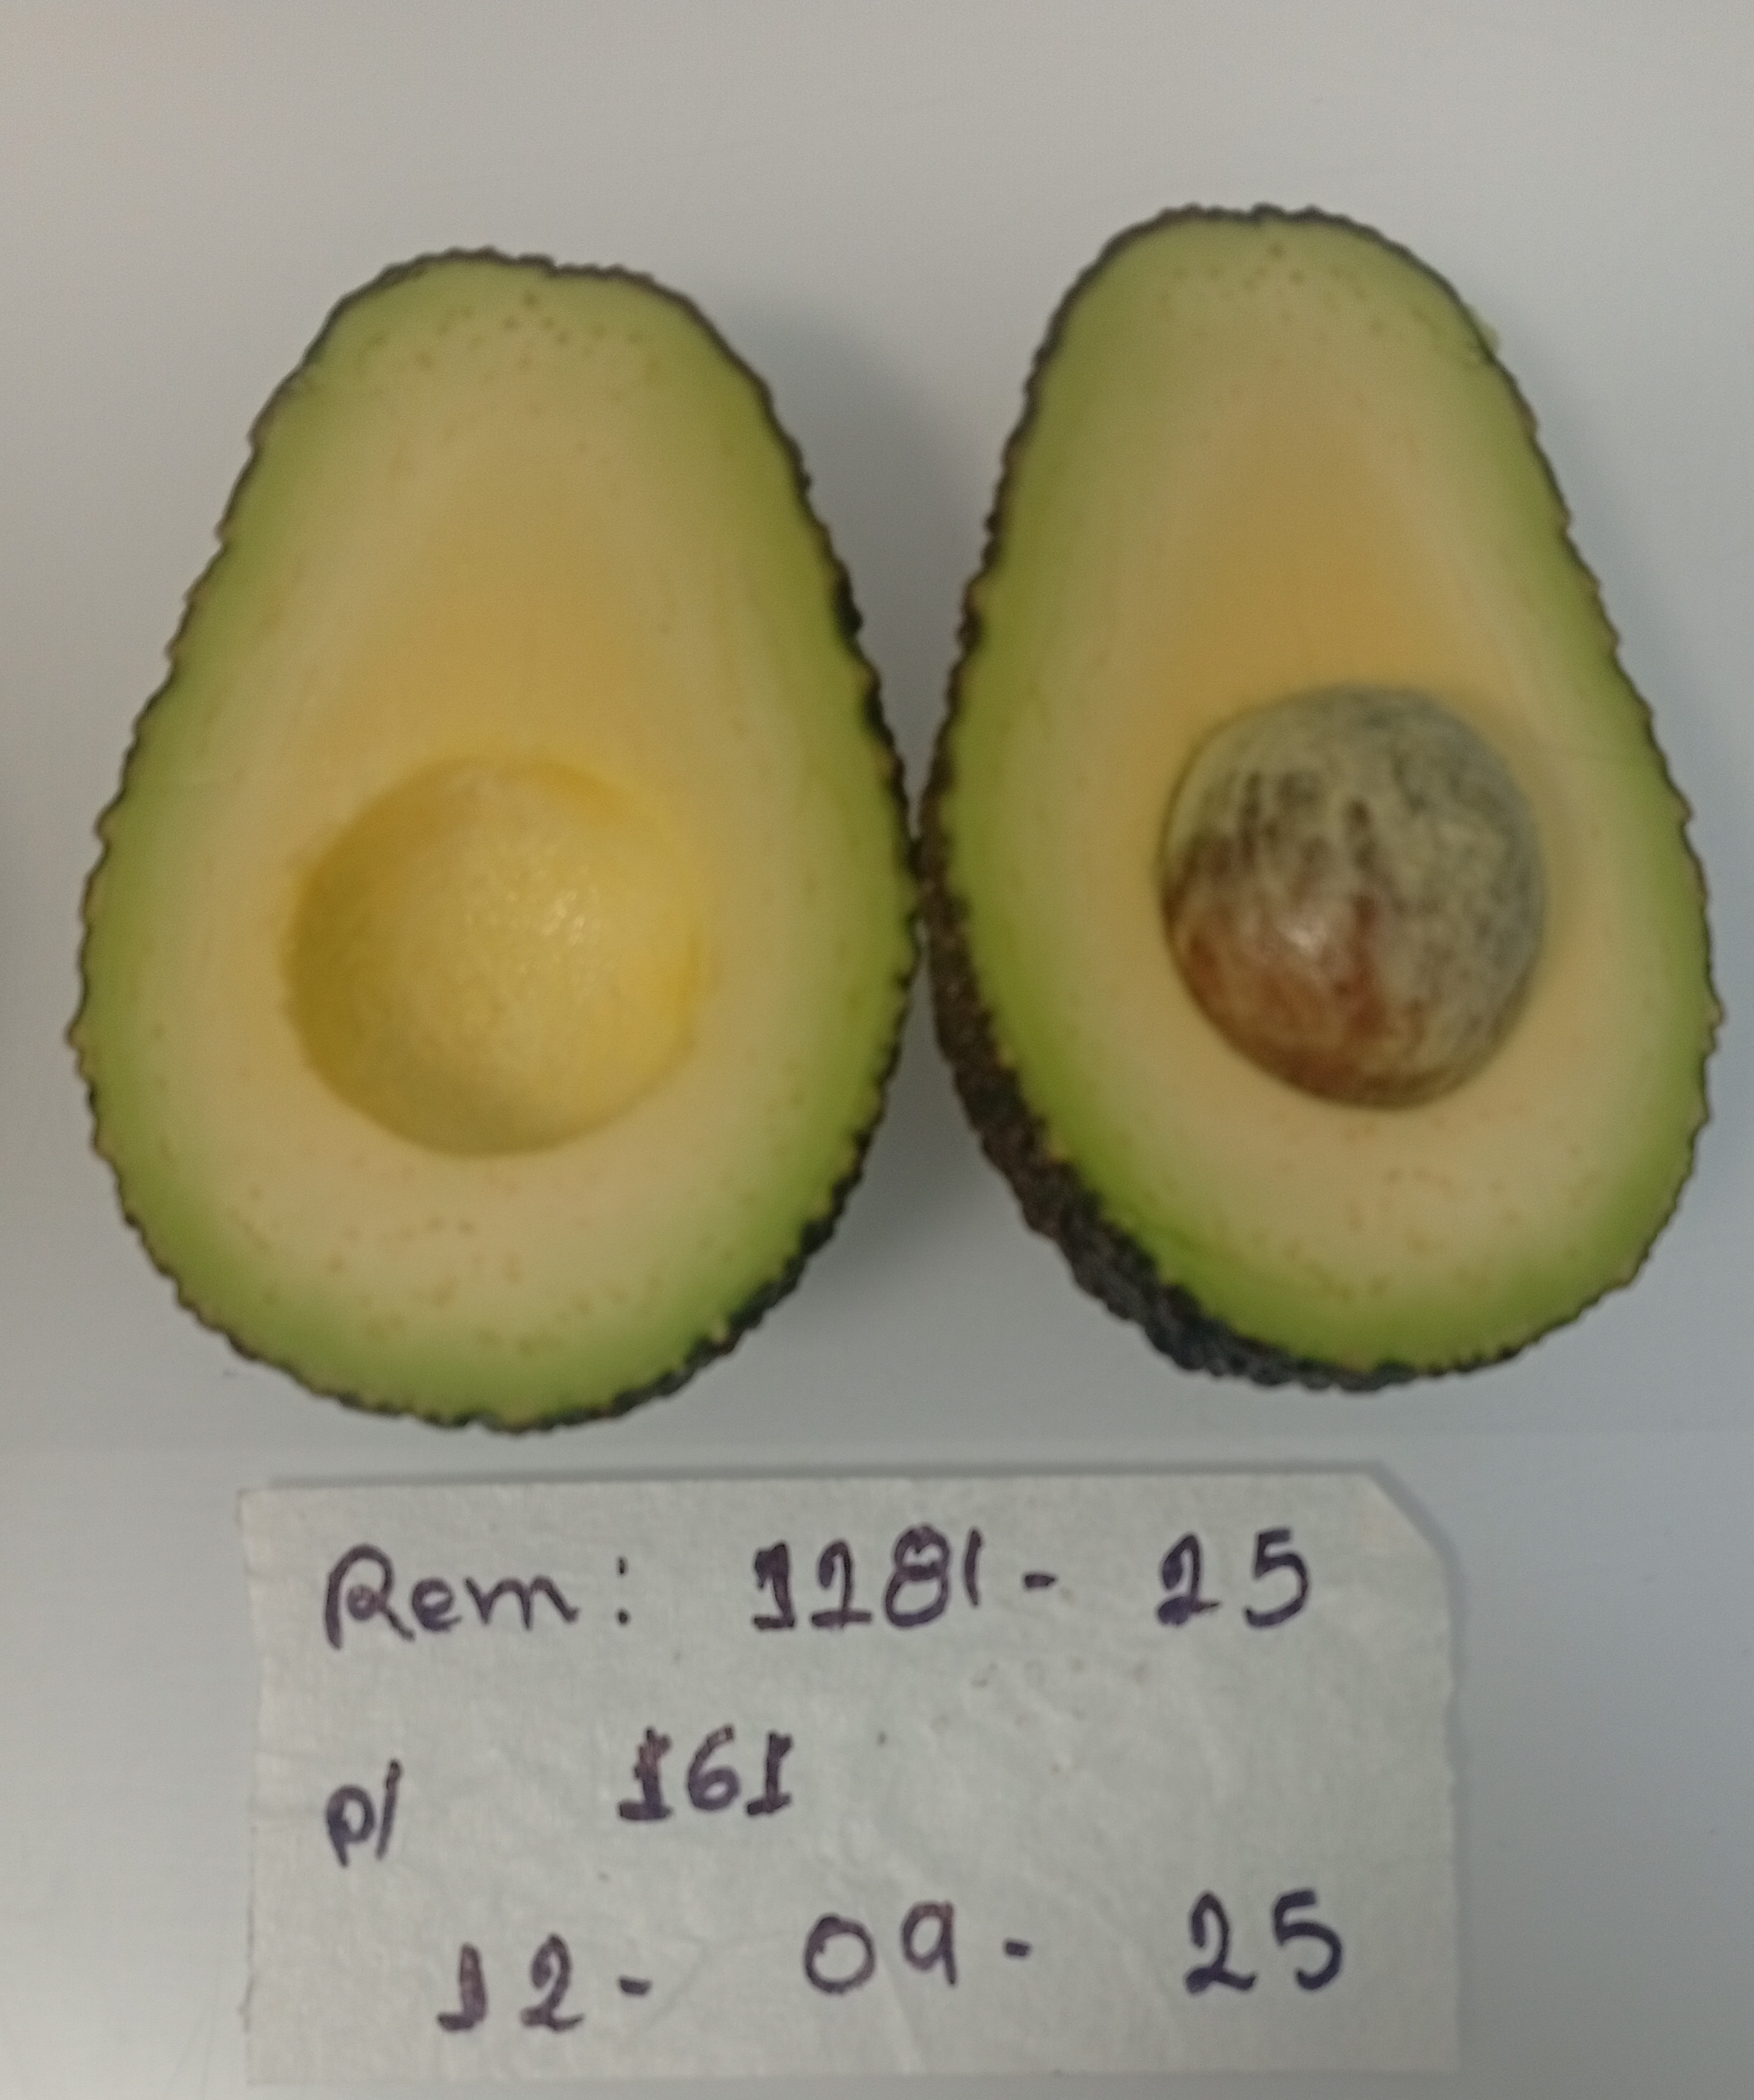 Rem: 1281- 25
p/ 161
12- 09- 25